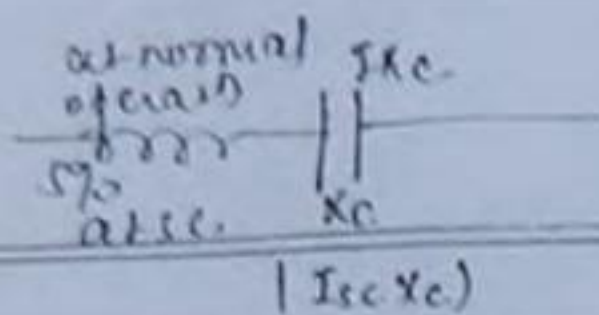 at normal IXc.
operation
5%
at s.c. Xc
| Isc Xc)